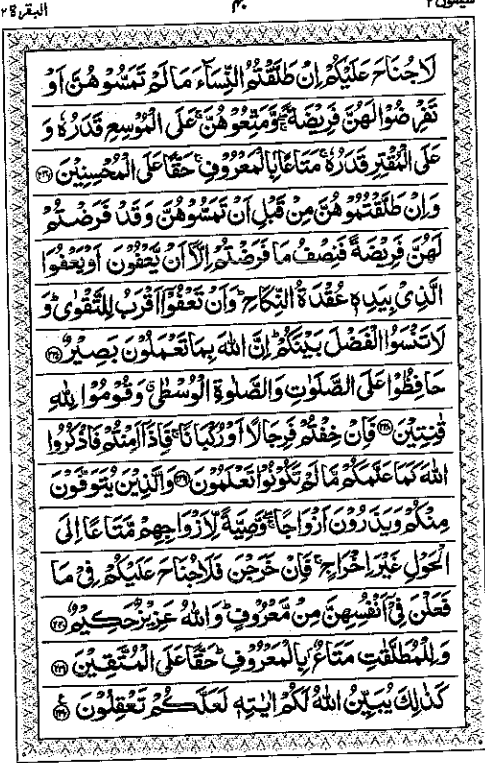 سیقول ٢
البقرة ٢
لَا جُنَاحَ عَلَيْكُمْ اِنْ طَلَّقْتُمُ النِّسَآءَ مَا لَمْ تَمَسُّوْهُنَّ اَوْ
تَفْرِضُوْا لَهُنَّ فَرِيْضَةً ۚۖ وَّمَتِّعُوْهُنَّ عَلَى الْمُوْسِعِ قَدَرُهٗ وَ
عَلَى الْمُقْتِرِ قَدَرُهٗ ۚ مَتَاعًۢا بِالْمَعْرُوْفِ ۚ حَقًّا عَلَى الْمُحْسِنِيْنَ ﴿۲۳۶﴾
وَاِنْ طَلَّقْتُمُوْهُنَّ مِنْ قَبْلِ اَنْ تَمَسُّوْهُنَّ وَقَدْ فَرَضْتُمْ
لَهُنَّ فَرِيْضَةً فَنِصْفُ مَا فَرَضْتُمْ اِلَّاۤ اَنْ يَّعْفُوْنَ اَوْ يَعْفُوَا
الَّذِيْ بِيَدِهٖ عُقْدَةُ النِّكَاحِ ؕ وَاَنْ تَعْفُوْۤا اَقْرَبُ لِلتَّقْوٰى ؕ وَ
لَا تَنْسَوُا الْفَضْلَ بَيْنَكُمْ ؕ اِنَّ اللّٰهَ بِمَا تَعْمَلُوْنَ بَصِيْرٌ ﴿۲۳۷﴾
حَافِظُوْا عَلَى الصَّلَوٰتِ وَالصَّلٰوةِ الْوُسْطٰى ۗ وَقُوْمُوْا لِلّٰهِ
قٰنِتِيْنَ ﴿۲۳۸﴾ فَاِنْ خِفْتُمْ فَرِجَالًا اَوْ رُكْبَانًا ۚ فَاِذَاۤ اَمِنْتُمْ فَاذْكُرُوا
اللّٰهَ كَمَا عَلَّمَكُمْ مَّا لَمْ تَكُوْنُوْا تَعْلَمُوْنَ ﴿۲۳۹﴾ وَالَّذِيْنَ يُتَوَفَّوْنَ
مِنْكُمْ وَيَذَرُوْنَ اَزْوَاجًا ۖۚ وَّصِيَّةً لِّاَزْوَاجِهِمْ مَّتَاعًا اِلَى
الْحَوْلِ غَيْرَ اِخْرَاجٍ ۚ فَاِنْ خَرَجْنَ فَلَا جُنَاحَ عَلَيْكُمْ فِيْ مَا
فَعَلْنَ فِيْۤ اَنْفُسِهِنَّ مِنْ مَّعْرُوْفٍ ؕ وَاللّٰهُ عَزِيْزٌ حَكِيْمٌ ﴿۲۴۰﴾
وَلِلْمُطَلَّقٰتِ مَتَاعٌۢ بِالْمَعْرُوْفِ ؕ حَقًّا عَلَى الْمُتَّقِيْنَ ﴿۲۴۱﴾
كَذٰلِكَ يُبَيِّنُ اللّٰهُ لَكُمْ اٰيٰتِهٖ لَعَلَّكُمْ تَعْقِلُوْنَ ﴿۲۴۲﴾ ع